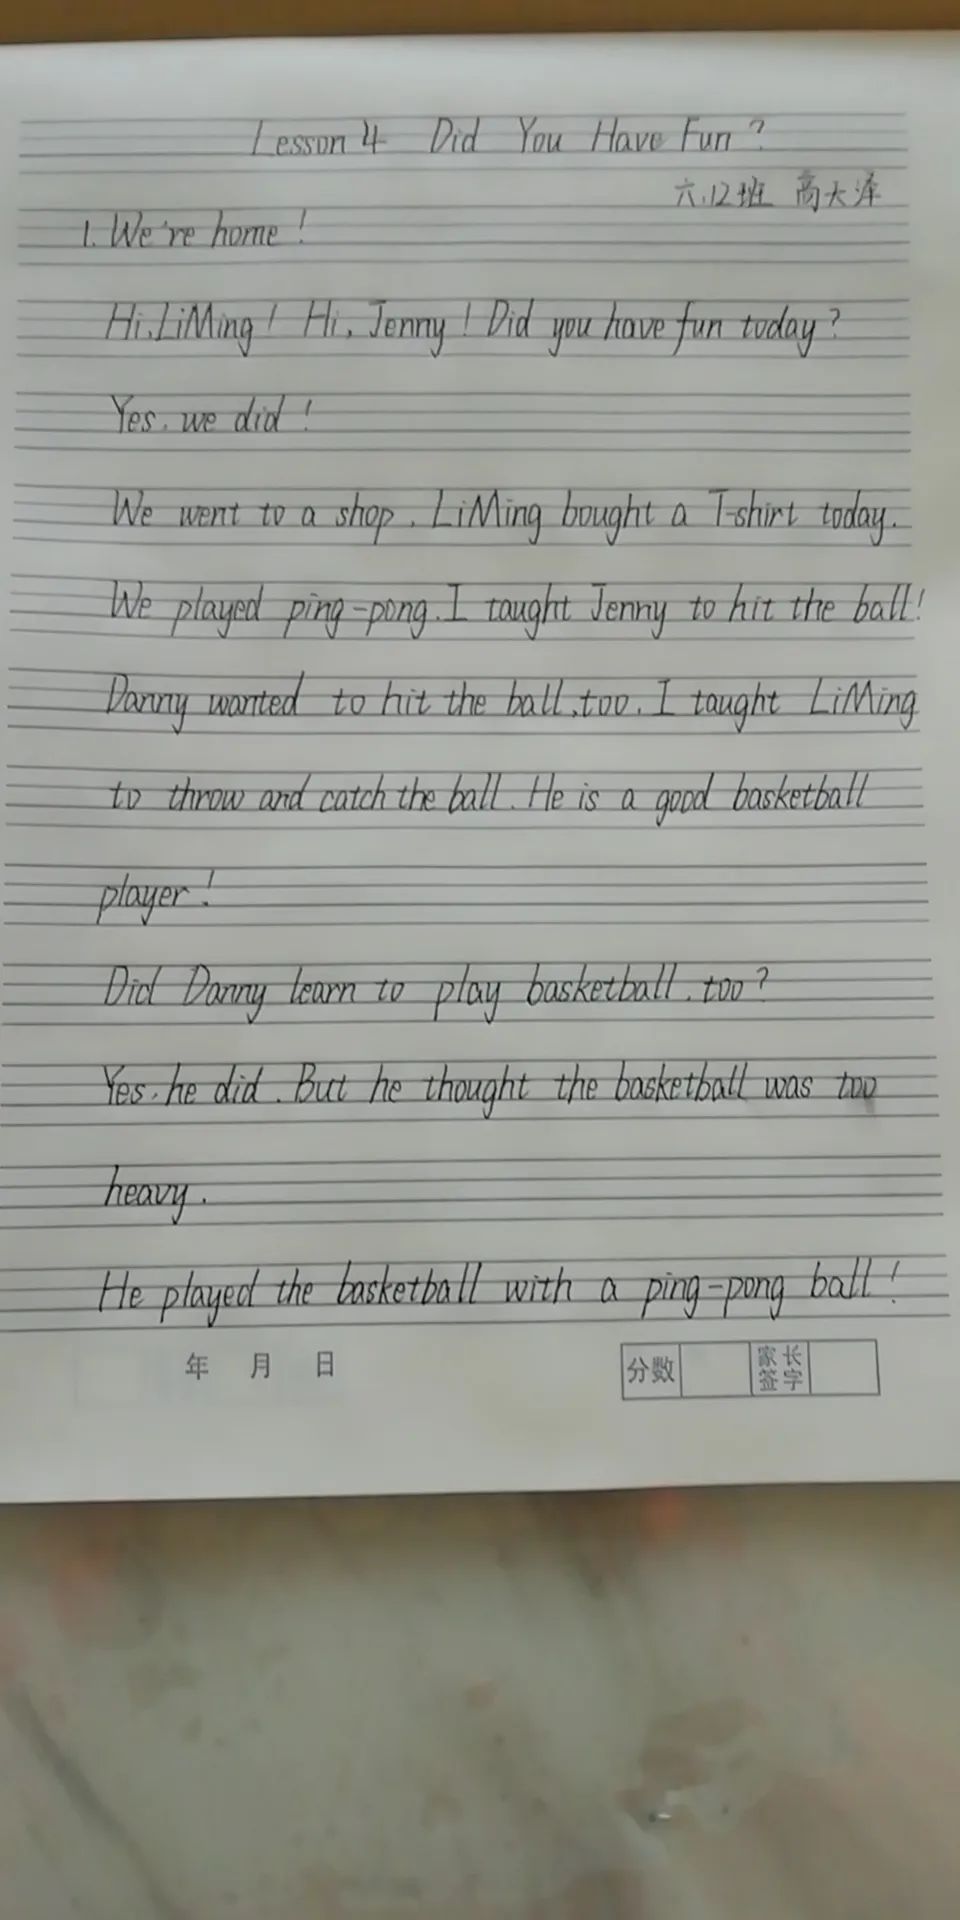 Lesson 4 Did You Have Fun?
六.12班 高大泽
1. We're home!
Hi, LiMing! Hi, Jenny! Did you have fun today?
Yes, we did!
We went to a shop. LiMing bought a T-shirt today.
We played ping-pong. I taught Jenny to hit the ball!
Danny wanted to hit the ball, too. I taught LiMing
to throw and catch the ball. He is a good basketball
player!
Did Danny learn to play basketball, too?
Yes, he did. But he thought the basketball was too
heavy.
He played the basketball with a ping-pong ball!
年 月 日 分数 家长签字